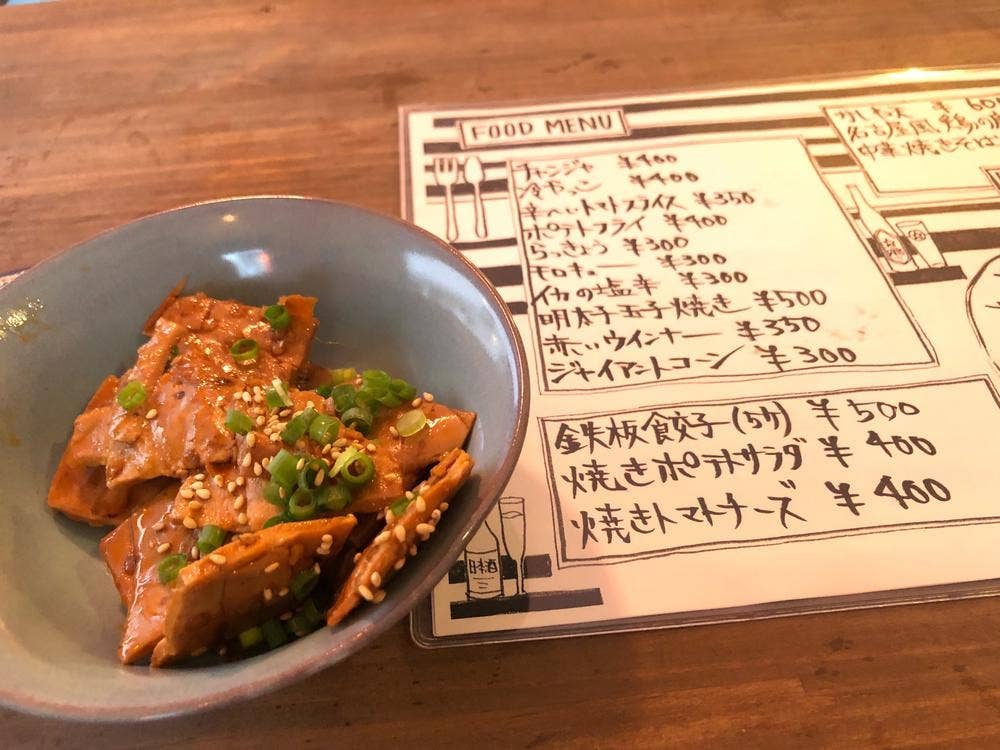 FOOD MENU
チャンジャ ¥400
冷やっこ ¥400
トマトスライス ¥350
ポテトフライ ¥400
らっきょう ¥300
モロキュー ¥300
イカの塩辛 ¥300
明太子玉子焼き ¥500
赤いウインナー ¥350
ジャイアントコーン ¥300
鉄板餃子(5ヶ) ¥500
焼きポテトサラダ ¥400
焼きトマトチーズ ¥400
名古屋風鶏の
中華焼きそば
日本酒